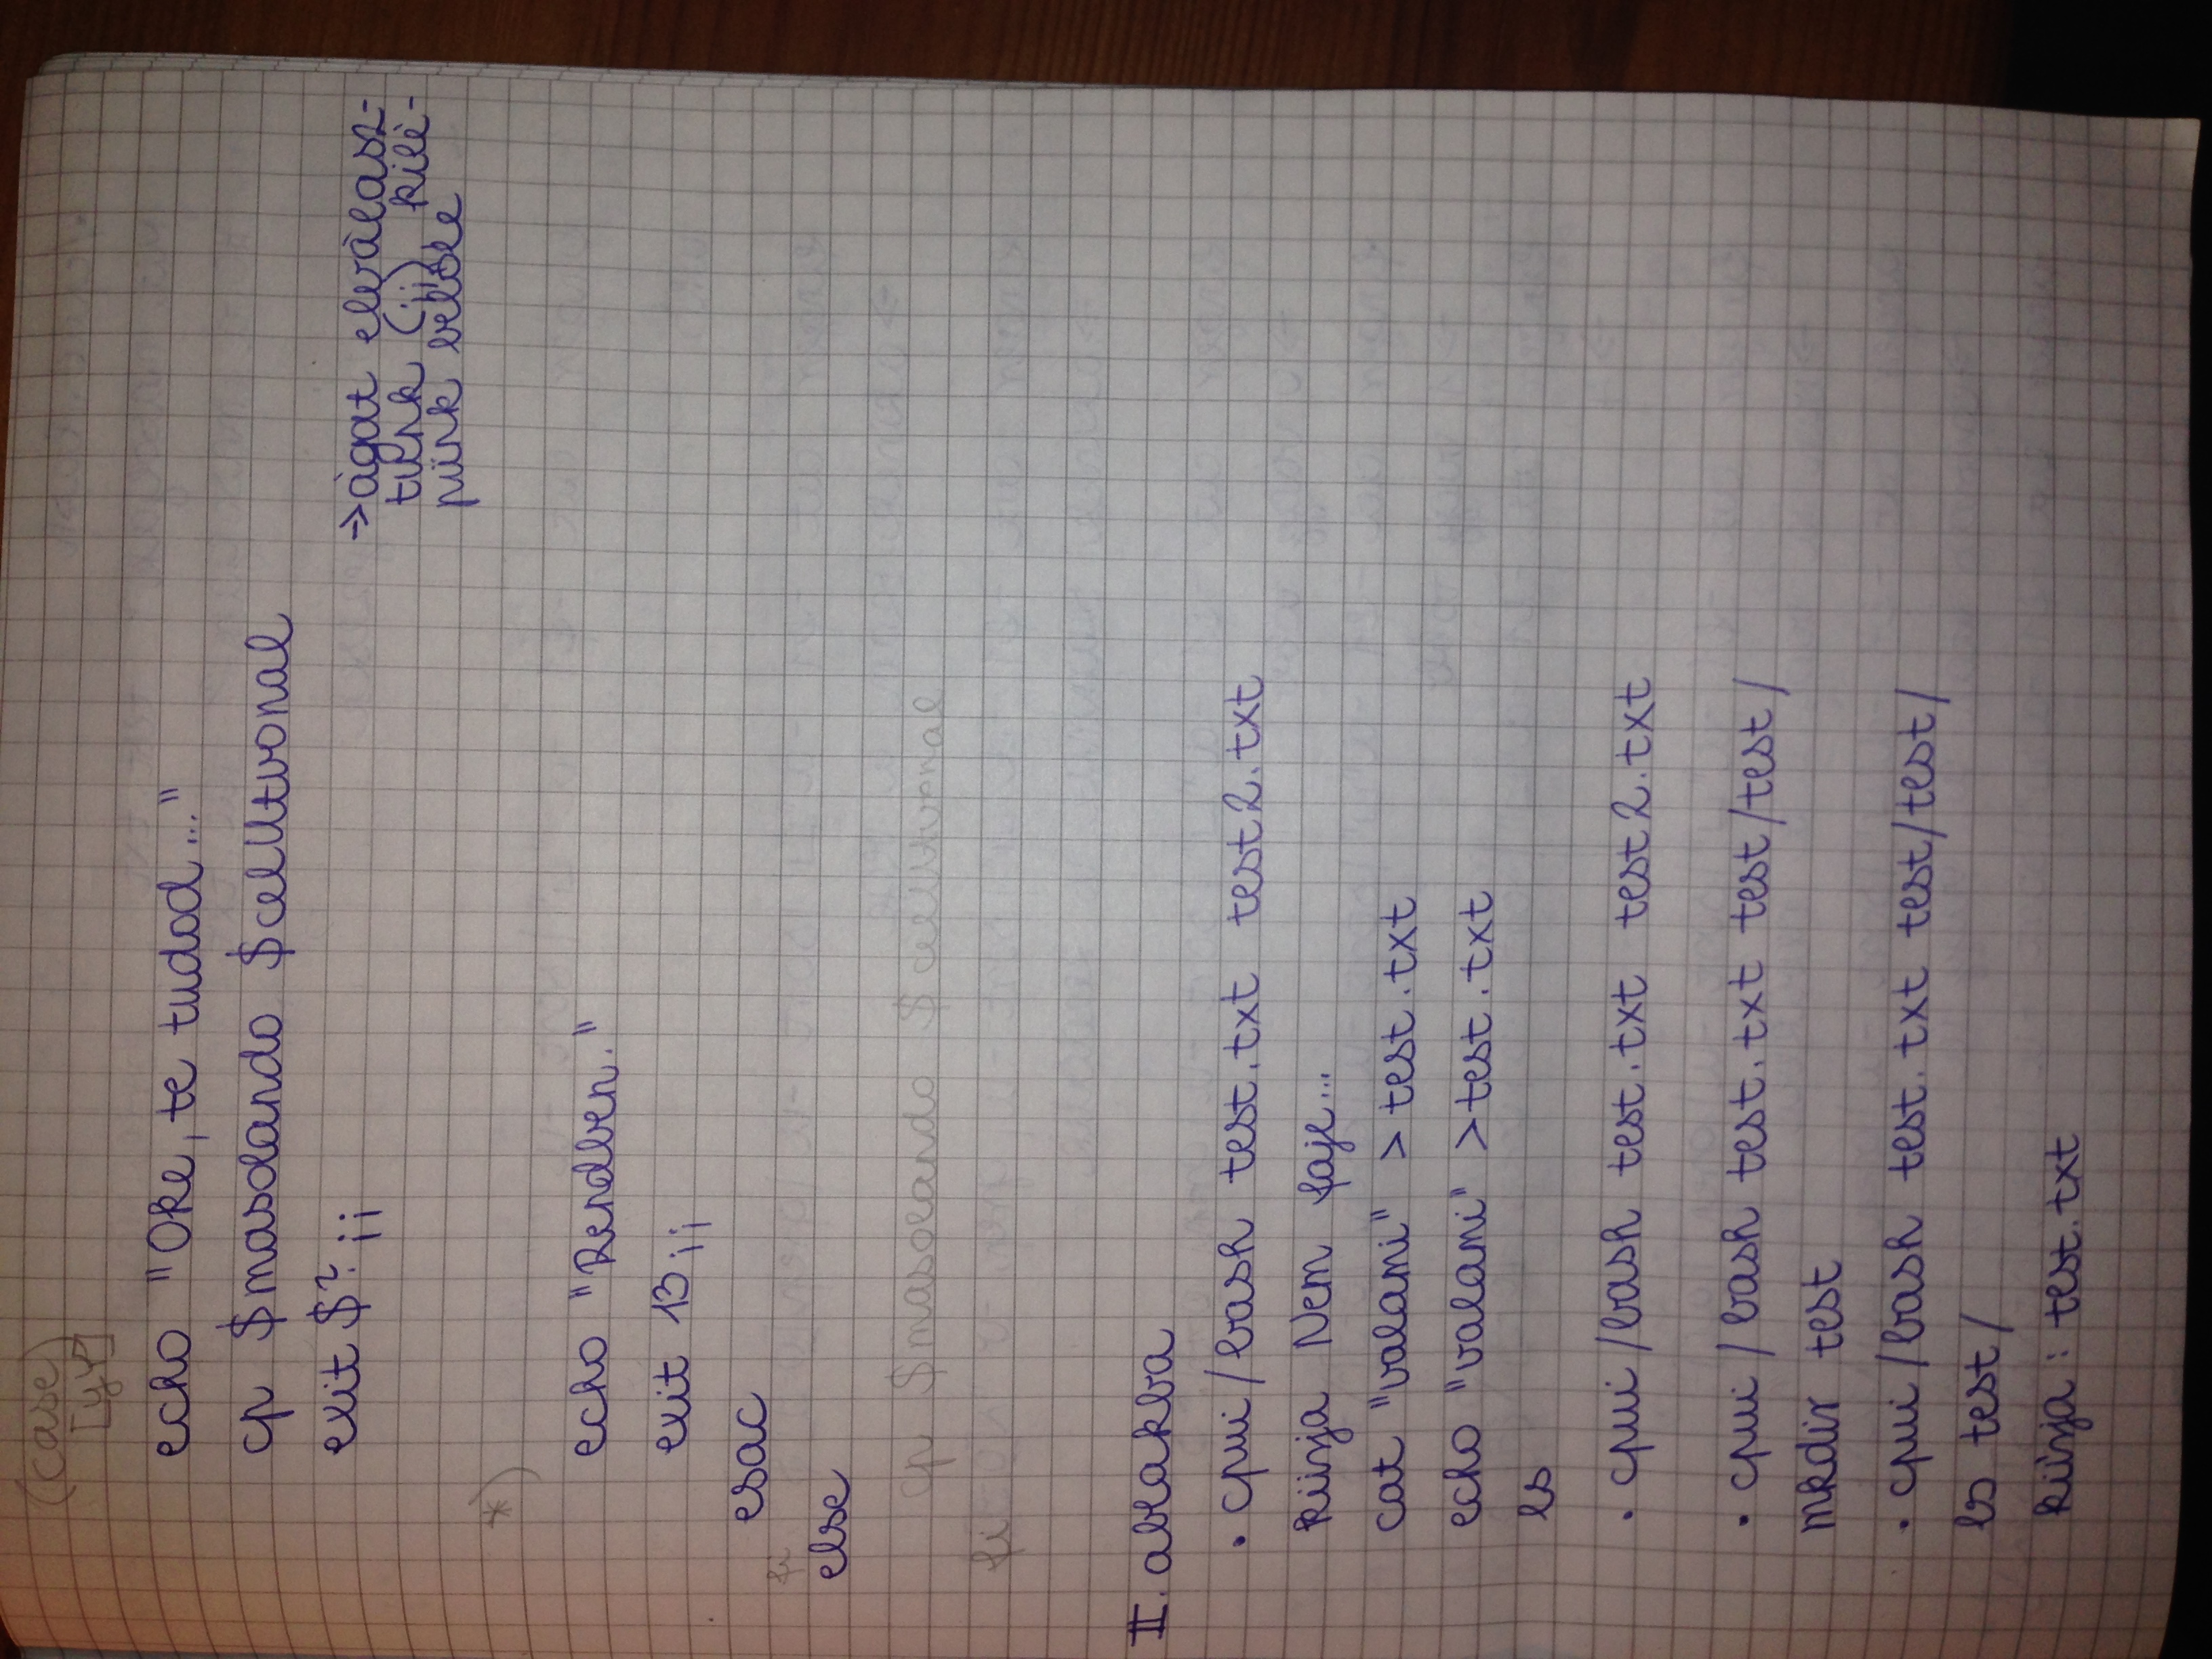 (case)
[yY]
echo "Oke, te tudod..."
cp $masolando $celUtvonal
exit $? ;;
→ ágat elválasz-
tunk (;;), kilé-
pünk belőle
*)
echo "Rendben."
exit 13;;
esac
fi
else
cp $masolando $celUtvonal
fi
II. ablakba
. cpui/bash test.txt test2.txt
kiírja Nem fájl...
cat "valami" > test.txt
echo "valami" > test.txt
ls
. cpui/bash test.txt test2.txt
. cpui/bash test.txt test/test/
mkdir test
. cpui/bash test.txt test/test/
ls test/
kiírja: test.txt